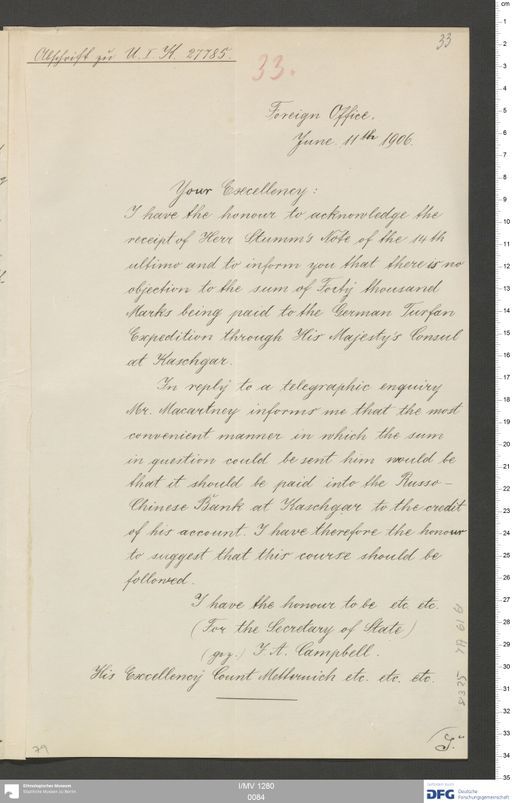 33
Abschrift zu U. I. K. 27785.
33.
Foreign Office.
June 11th 1906.
Your Excellency:
I have the honour to acknowledge the
receipt of Herr Stumm's Note of the 14th
ultimo and to inform you that there is no
objection to the sum of Forty thousand
Marks being paid to the German Turfan
Expedition through His Majesty's Consul
at Kaschgar.
In reply to a telegraphic enquiry
Mr. Macartney informs me that the most
convenient manner in which the sum
in question could be sent him would be
that it should be paid into the Russo-
Chinese Bank at Kaschgar to the credit
of his account. I have therefore the honour
to suggest that this course should be
followed.
I have the honour to be etc. etc.
(For the Secretary of State)
(gez.) F. A. Campbell.
His Excellency Count Metternich etc. etc. etc.
79
Ethnologisches Museum
Staatliche Museen zu Berlin
I/MV 1280
0084
DFG Deutsche
Forschungsgemeinschaft
cm
1
2
3
4
5
6
7
8
9
10
11
12
13
14
15
16
17
18
19
20
21
22
23
24
25
26
27
28
29
30
31
32
33
34
35